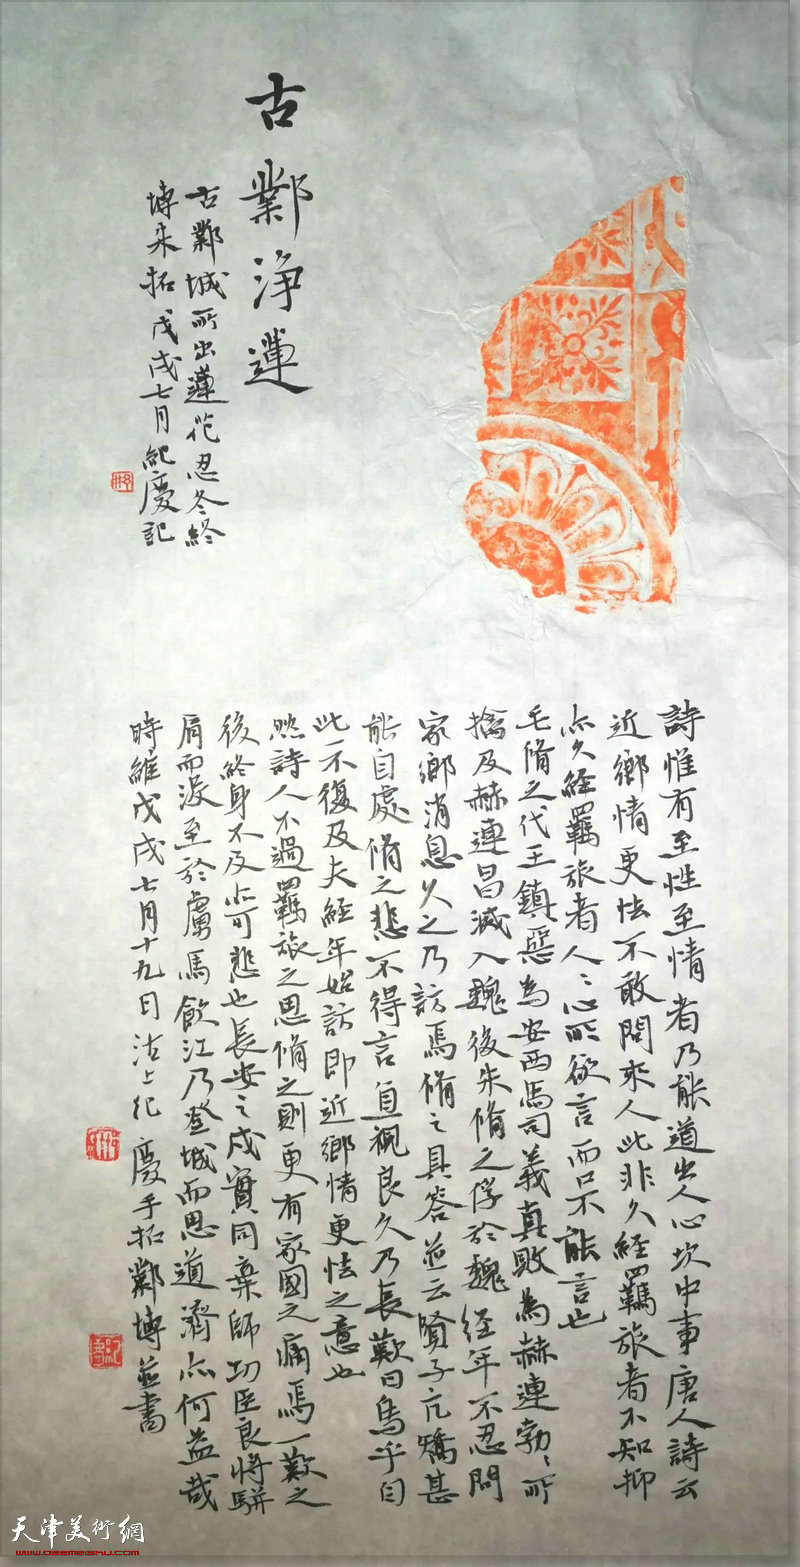 古鄴淨蓮
古鄴城所出蓮花忍冬終
塼朱拓戊戌七月紀慶記
詩惟有至性至情者乃能道出人心坎中事唐人詩云
近鄉情更怯不敢問來人此非久經羈旅者不知抑
亦久經羈旅者人〻心所欲言而口不能言也
毛脩之代王鎮惡為安西馬司義真敗為赫連勃〻所
擒及赫連昌滅入魏後朱脩之俘於魏經年不忍問
家鄉消息久之乃訪焉脩之具答並云賢子亢矯甚
能自處脩之悲不得言直視良久乃長歎曰烏乎自
此一不復及夫經年始訪即近鄉情更怯之意也
然詩人不過羈旅之思脩之則更有家國之痛焉一歎之
後終身不及亦可悲也長安之戍實同棄師功臣良將駢
肩而涙至於虜馬飲江乃登城而思道濟亦何益哉
時維戊戌七月十九日沽上紀慶手拓鄴塼並書
天津美術網
www.022meishu.com